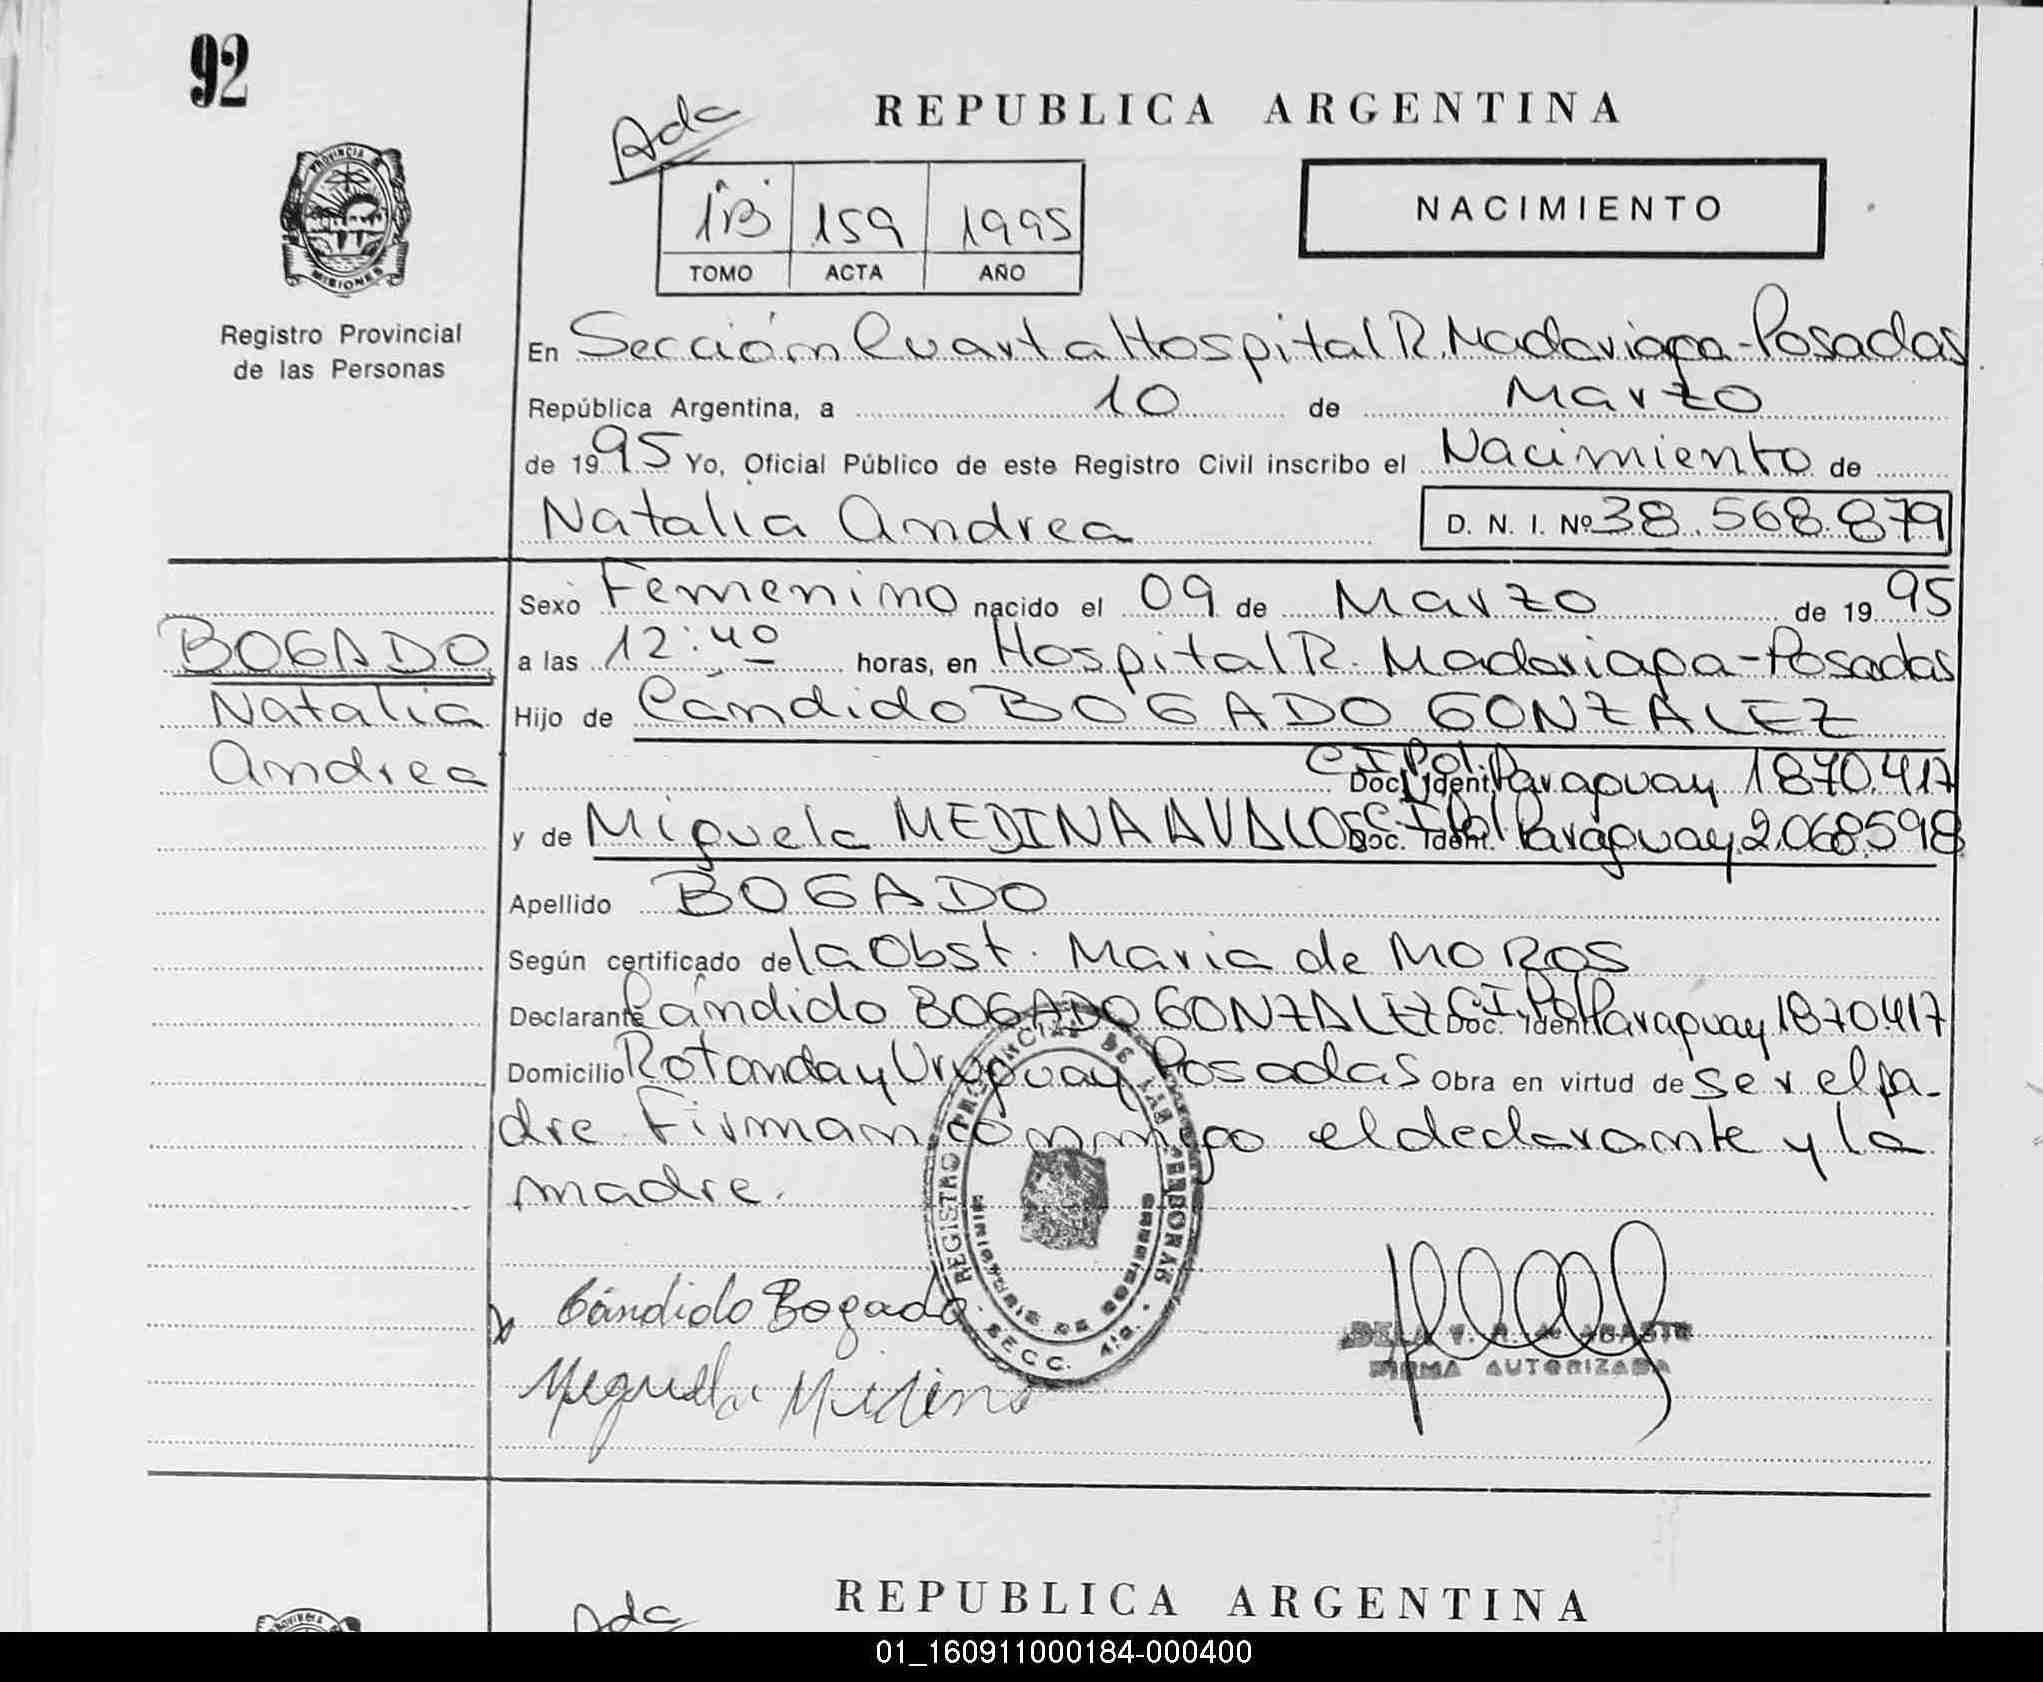 92
Ada
REPUBLICA ARGENTINA
1B 159 1995
TOMO ACTA AÑO
NACIMIENTO
PROVINCIA
MISIONES
Registro Provincial
de las Personas
En Sección Cuarta Hospital R. Madariaga - Posadas
República Argentina, a 10 de Marzo
de 1995 Yo, Oficial Público de este Registro Civil inscribo el Nacimiento de
Natalia Andrea D. N. I. Nº 38.568.879
Sexo Femenino nacido el 09 de Marzo de 1995
BOGADO
Natalia
Andrea
a las 12:40 horas, en Hospital R. Madariaga - Posadas
Hijo de Cándido BOGADO GONZALEZ
Doc. Ident. C.I. Pol. Paraguay 1870.417
y de Miguela MEDINA AVALOS Doc. Ident. C.I. Pol Paraguay 2.068.598
Apellido BOGADO
Según certificado de la Obst. Maria de MOROS
Declarante Cándido BOGADO GONZALEZ Doc. Ident. C.I. Pol Paraguay 1870417
Domicilio Rotonda y Uruguay Posadas Obra en virtud de ser el pa-
dre Firman conmigo el declarante y la
madre.
REGISTRO PROVINCIAL DE LAS PERSONAS
MINISTERIO DE GOBIERNO
SECC. 4ta.
Cándido Bogado
Miguela Medina
FIRMA AUTORIZADA
REPUBLICA ARGENTINA
Ada
01_160911000184-000400